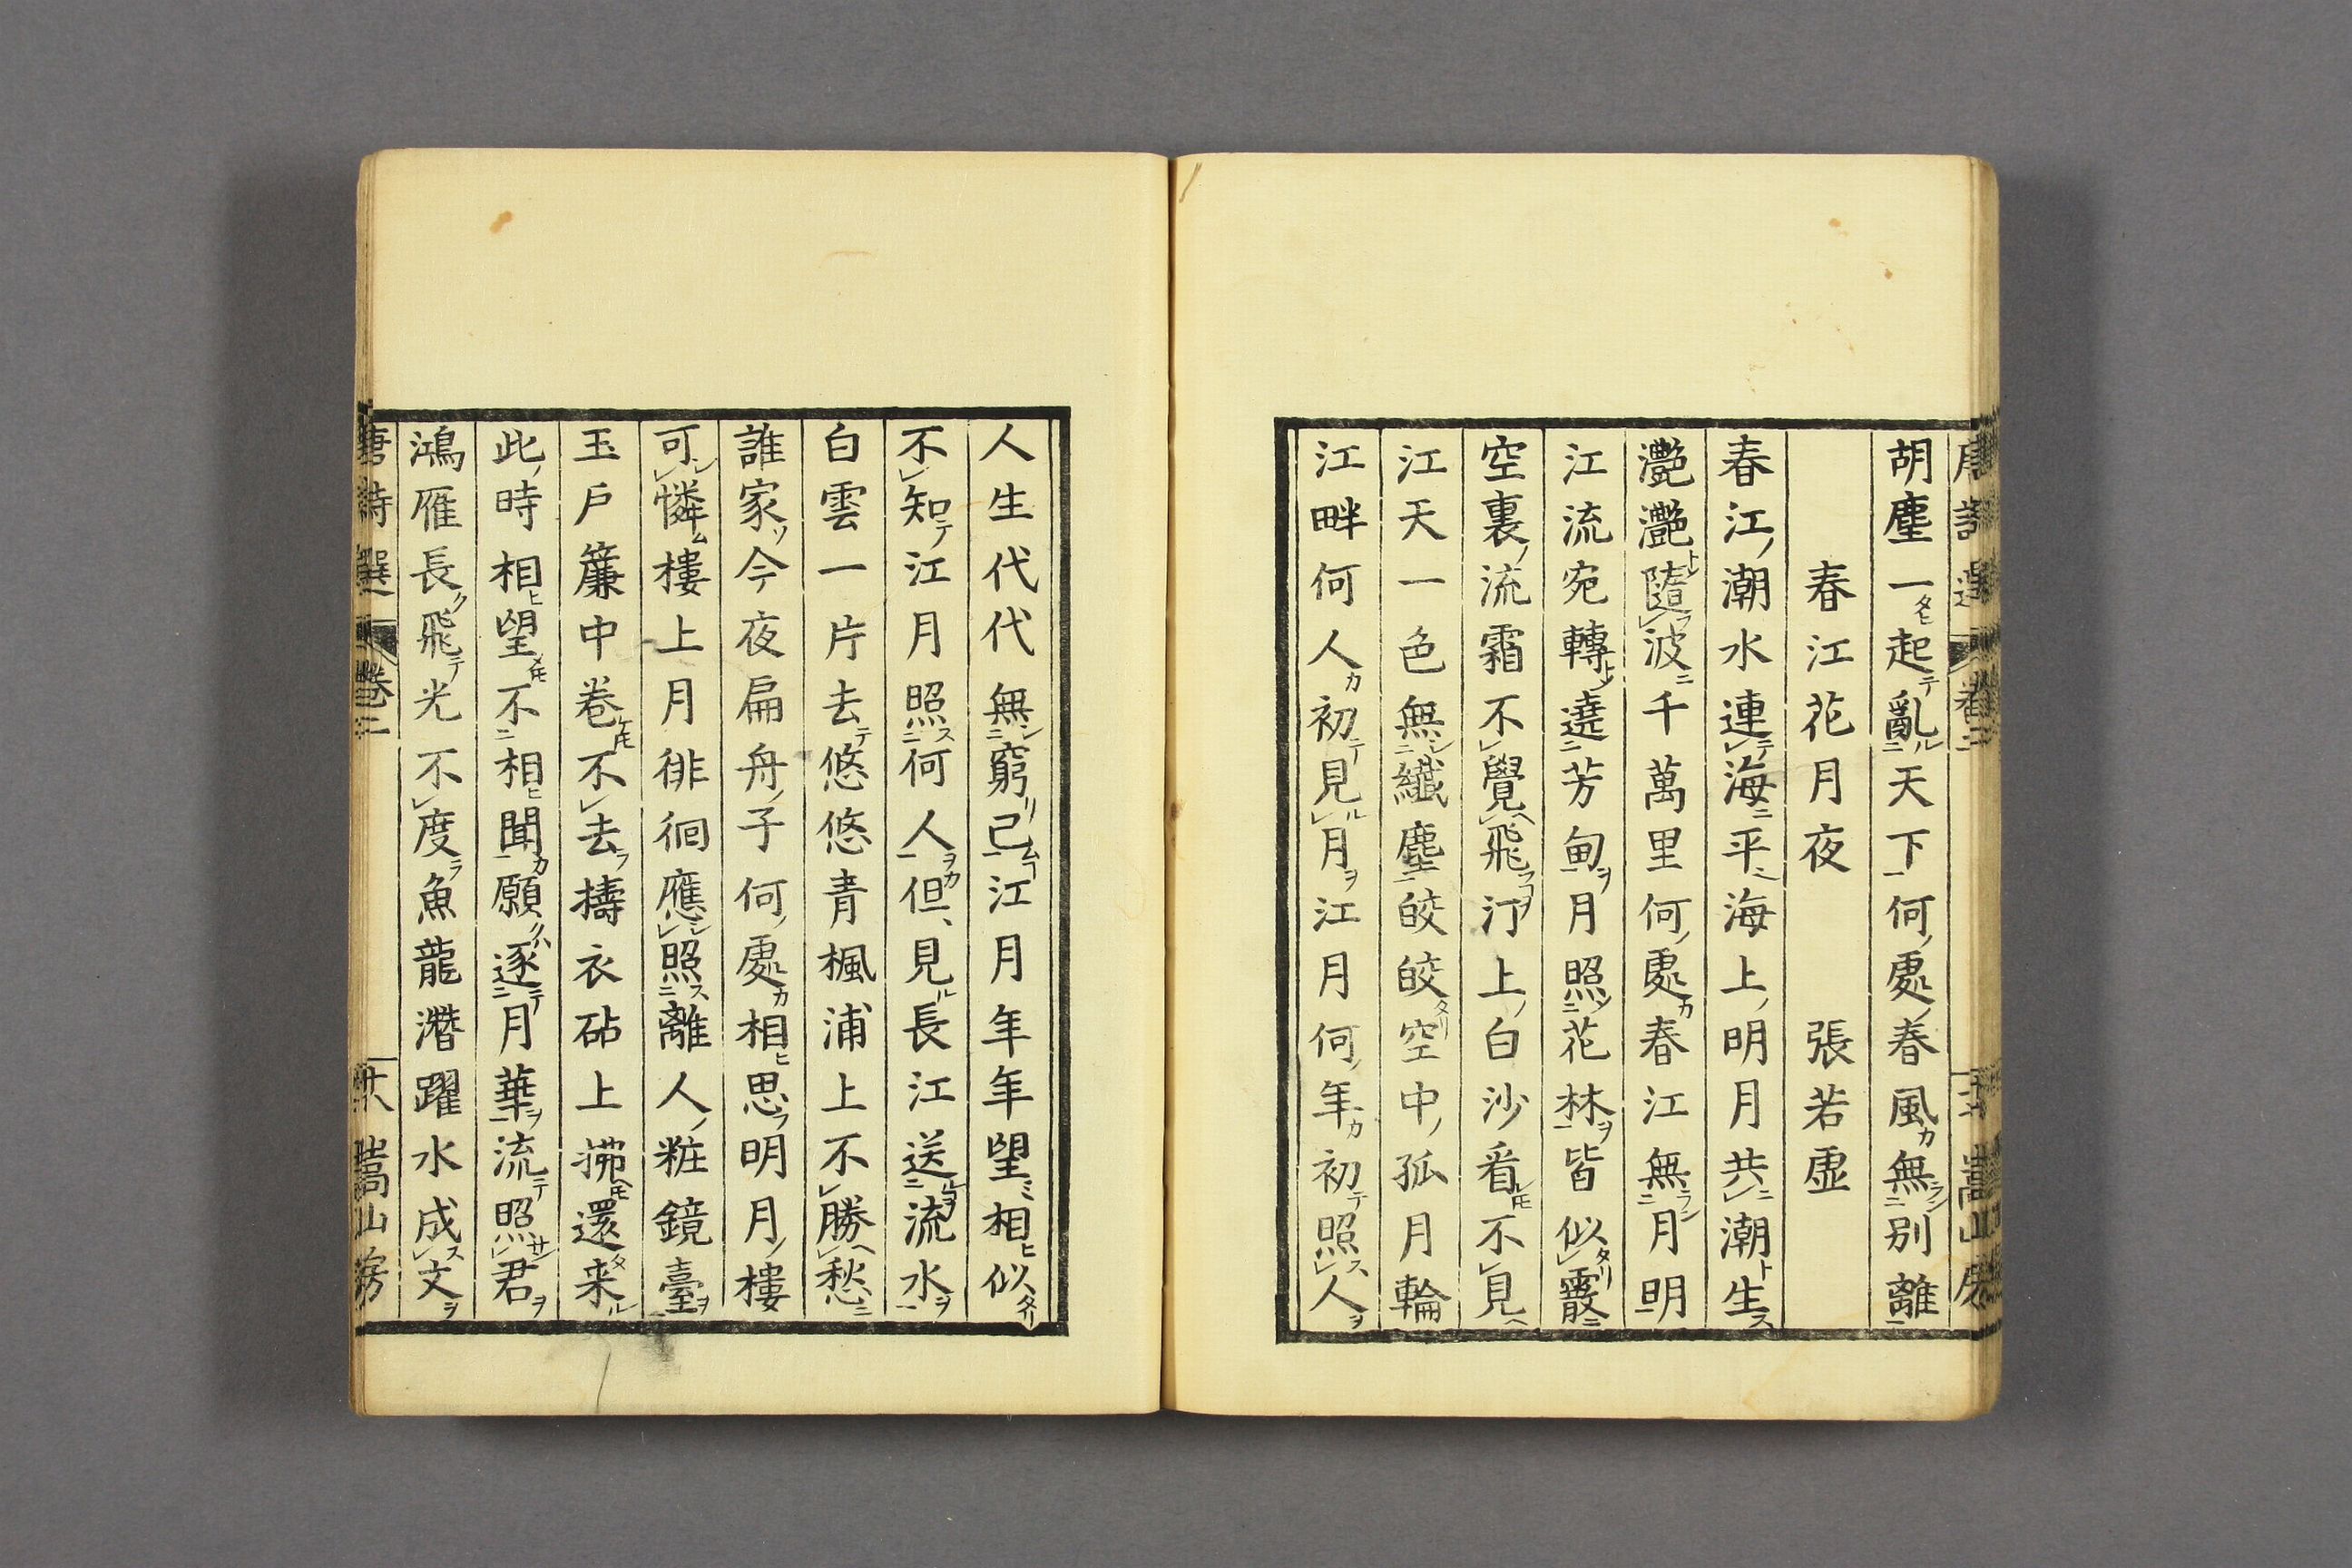 唐詩選 卷二 嵩山房
胡塵一起亂天下何處春風無别離
春江花月夜 張若虚
春江潮水連海平海上明月共潮生
灧灧隨波千萬里何處春江無月明
江流宛轉遶芳甸月照花林皆似霰
空裏流霜不覺飛汀上白沙看不見
江天一色無纖塵皎皎空中孤月輪
江畔何人初見月江月何年初照人
人生代代無窮已江月年年望相似
不知江月照何人但見長江送流水
白雲一片去悠悠青楓浦上不勝愁
誰家今夜扁舟子何處相思明月樓
可憐樓上月徘徊應照離人粧鏡臺
玉戶簾中卷不去擣衣砧上拂還来
此時相望不相聞願逐月華流照君
鴻雁長飛光不度魚龍潛躍水成文
唐詩選 卷二 嵩山房